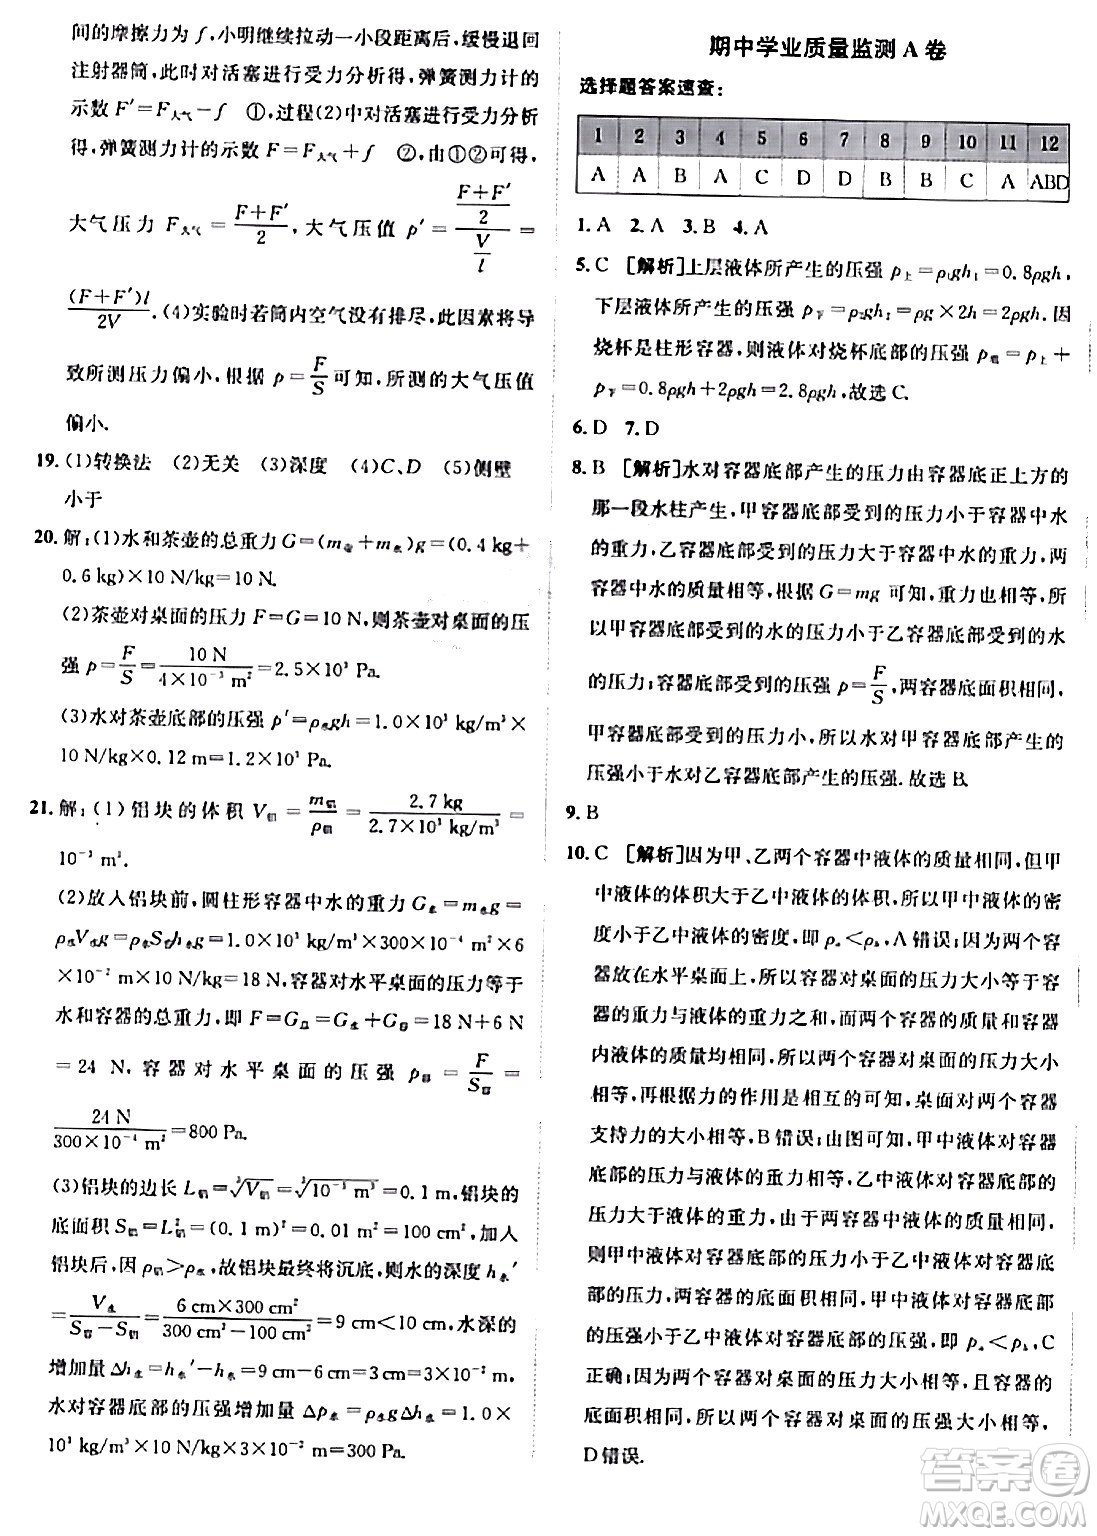 间的摩擦力为 f,小明继续拉动一小段距离后,缓慢退回
注射器筒,此时对活塞进行受力分析得,弹簧测力计的
示数 F′=F大气−f　①,过程(2)中对活塞进行受力分析得,
弹簧测力计的示数 F=F大气+f　②,由①②可得,
大气压力 F大气=(F+F′)/2,大气压值 p′=((F+F′)/2)/(V/l)=
(F+F′)l/2V.(4)实验时若筒内空气没有排尽,此因素将导
致所测压力偏小,根据 p=F/S 可知,所测的大气压值
偏小.
19.(1)转换法　(2)无关　(3)深度　(4)C、D　(5)侧壁
小于
20.解:(1)水和茶壶的总重力 G=(m壶+m水)g=(0.4 kg+
0.6 kg)×10 N/kg=10 N.
(2)茶壶对桌面的压力 F=G=10 N,则茶壶对桌面的压
强 p=F/S=10 N/(4×10⁻³ m²)=2.5×10³ Pa.
(3)水对茶壶底部的压强 p′=ρ水gh=1.0×10³ kg/m³×
10 N/kg×0.12 m=1.2×10³ Pa.
21.解:(1)铝块的体积 V铝=m铝/ρ铝=2.7 kg/(2.7×10³ kg/m³)=
10⁻³ m³.
(2)放入铝块前,圆柱形容器中水的重力 G水=m水g=
ρ水V水g=ρ水S容h水g=1.0×10³ kg/m³×300×10⁻⁴ m²×6
×10⁻² m×10 N/kg=18 N,容器对水平桌面的压力等于
水和容器的总重力,即 F=G总=G水+G容=18 N+6 N
=24 N,容器对水平桌面的压强 p容=F/S容=
24 N/(300×10⁻⁴ m²)=800 Pa.
(3)铝块的边长 L铝=³√V铝=³√(10⁻³ m³)=0.1 m,铝块的
底面积 S铝=L铝²=(0.1 m)²=0.01 m²=100 cm²,加入
铝块后,因 ρ铝>ρ水,故铝块最终将沉底,则水的深度 h水′
=V水/(S容−S铝)=(6 cm×300 cm²)/(300 cm²−100 cm²)=9 cm<10 cm,水深的
增加量 Δh水=h水′−h水=9 cm−6 cm=3 cm=3×10⁻² m,
水对容器底部的压强增加量 Δp水=ρ水gΔh水=1.0×
10³ kg/m³×10 N/kg×3×10⁻² m=300 Pa.
期中学业质量监测 A 卷
选择题答案速查:
1 2 3 4 5 6 7 8 9 10 11 12
A A B A C D D B B C A ABD
1.A　2.A　3.B　4.A
5.C　[解析]上层液体所产生的压强 p上=ρ1gh1=0.8ρgh,
下层液体所产生的压强 p下=ρ2gh2=ρg×2h=2ρgh.因
烧杯是柱形容器,则液体对烧杯底部的压强 p総=p上+
p下=0.8ρgh+2ρgh=2.8ρgh,故选 C.
6.D　7.D
8.B　[解析]水对容器底部产生的压力由容器底正上方的
那一段水柱产生,甲容器底部受到的压力小于容器中水
的重力,乙容器底部受到的压力大于容器中水的重力,两
容器中水的质量相等,根据 G=mg 可知,重力也相等,所
以甲容器底部受到的水的压力小于乙容器底部受到的水
的压力;容器底部受到的压强 p=F/S,两容器底面积相同,
甲容器底部受到的压力小,所以水对甲容器底部产生的
压强小于水对乙容器底部产生的压强.故选 B.
9.B
10.C　[解析]因为甲、乙两个容器中液体的质量相同,但甲
中液体的体积大于乙中液体的体积,所以甲中液体的密
度小于乙中液体的密度,即 ρ甲<ρ乙,A 错误;因为两个
容器放在水平桌面上,所以容器对桌面的压力大小等于
容器的重力与液体的重力之和,而两个容器的质量和容器
内液体的质量均相同,所以两个容器对桌面的压力大小
相等,再根据力的作用是相互的可知,桌面对两个容器
支持力的大小相等,B 错误;由图可知,甲中液体对容器
底部的压力小于液体的重力,而乙中液体对容器底部的
压力大于液体的重力,由于两容器中液体的重力相同,
则甲中液体对容器底部的压力小于乙中液体对容器底
部的压力,又两容器的底面积相同,甲中液体对容器底部
的压强小于乙中液体对容器底部的压强,即 p甲<p乙,C
正确;因为两容器对桌面的压力大小相等,且两容器的
底面积相同,所以两容器对桌面的压强大小相等,
D 错误.
答案圈
MXQE.COM